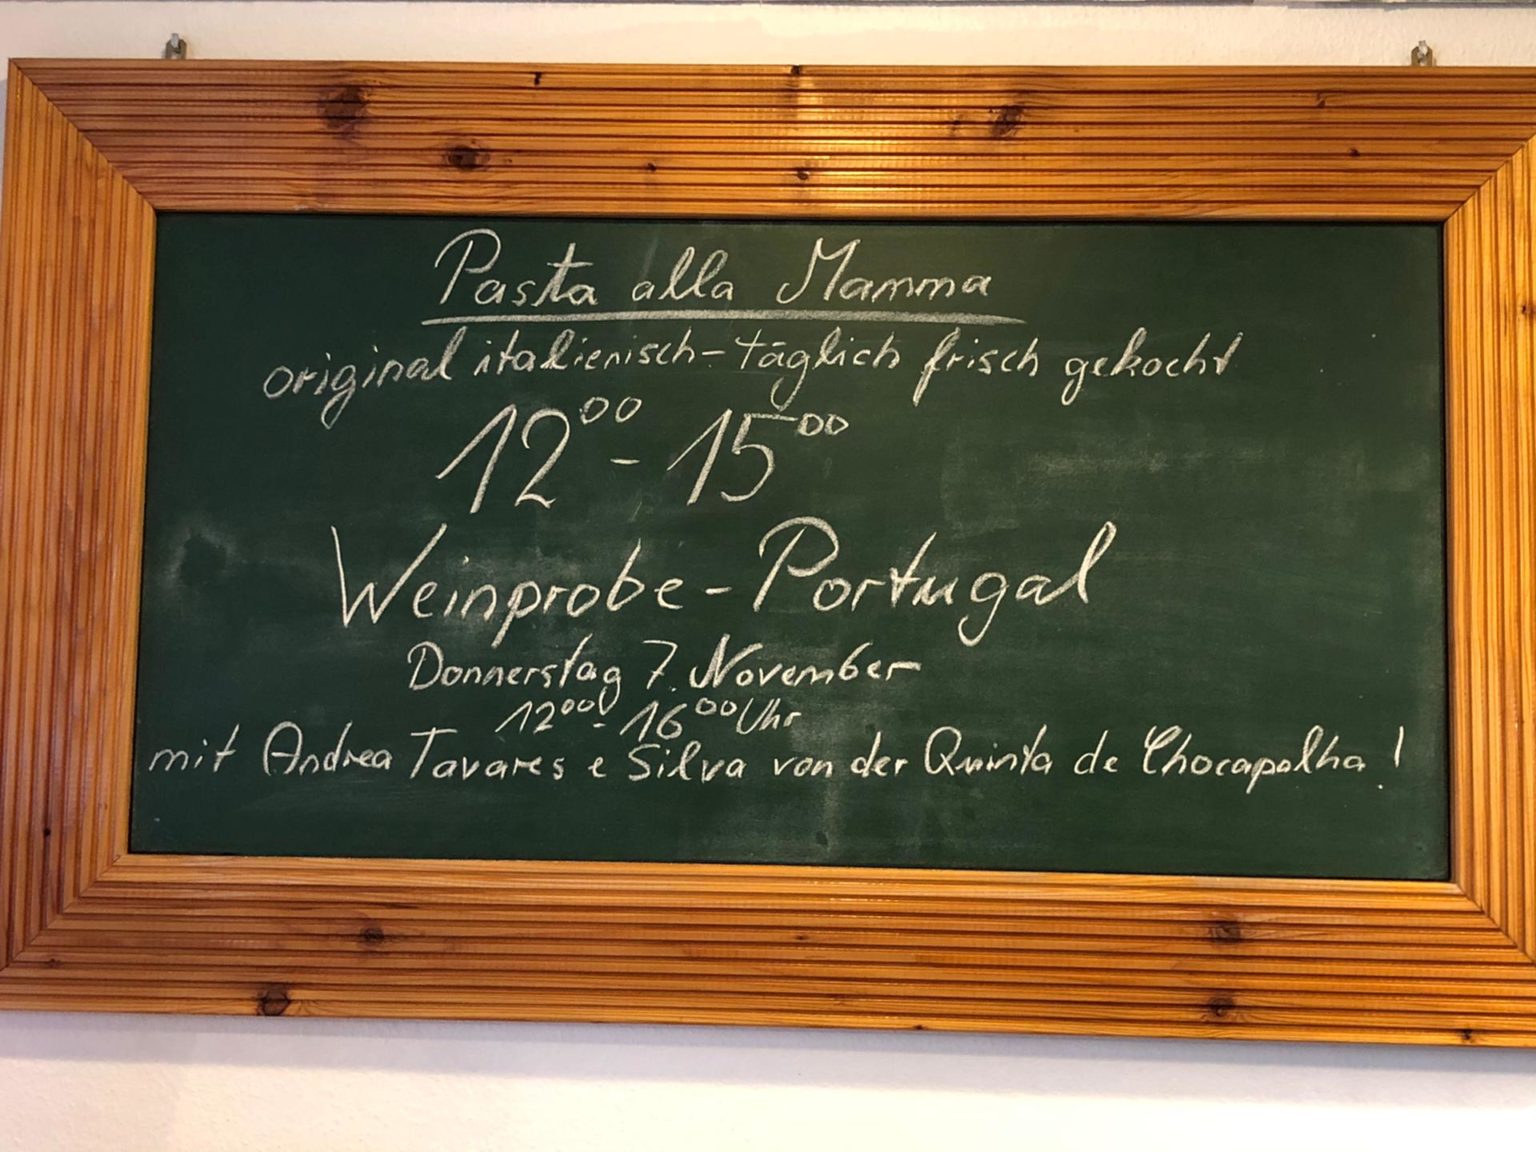 Pasta alla Mamma
original italienisch - täglich frisch gekocht
12⁰⁰ - 15⁰⁰
Weinprobe - Portugal
Donnerstag 7. November
12⁰⁰ - 16⁰⁰ Uhr
mit Andrea Tavares e Silva von der Quinta de Chocapalha!